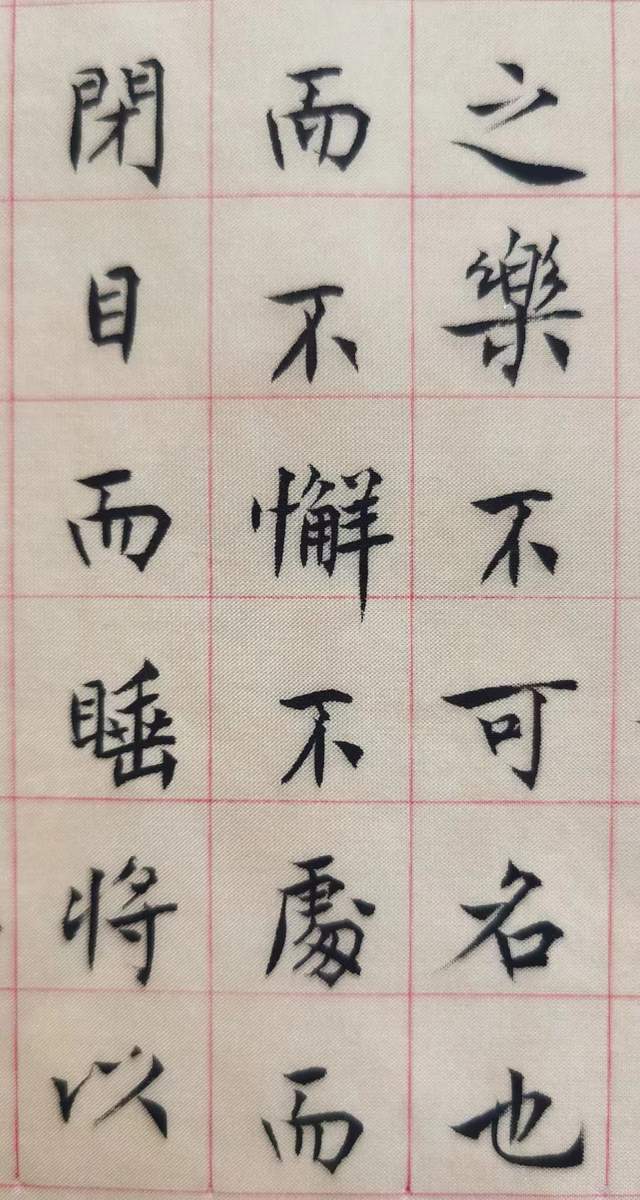 之樂不可名也
而不懈不處而
閉目而睡將以